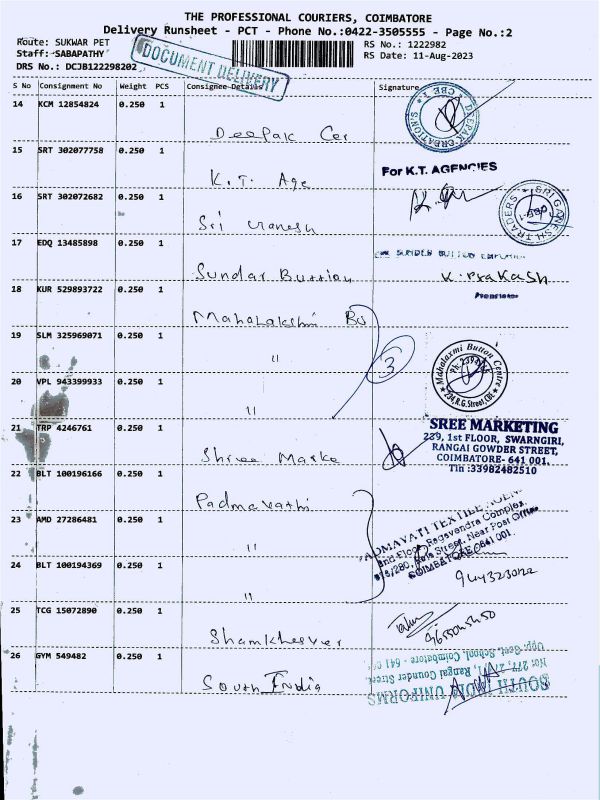 THE PROFESSIONAL COURIERS, COIMBATORE
Delivery Runsheet - PCT - Phone No.:0422-3505555 - Page No.:2
Route: SUKWAR PET
RS No.: 1222982
Staff: SABAPATHY
RS Date: 11-Aug-2023
DRS No.: DCJB122298202
DOCUMENT DELIVERY
S No Consignment No Weight PCS Consignee Details Signature
14 KCM 12854824 0.250 1
Deepak Cer
DEEPAK CREATIONS CBE-1
15 SRT 302077758 0.250 1
K.T. Age
For K.T. AGENCIES
16 SRT 302072682 0.250 1
Sri Ganesh
SRI GANESH TRADERS CBE-1
17 EDQ 13485898 0.250 1
Sundar Button
K. Prakash
Proprietor
18 KUR 529893722 0.250 1
Mahalakshmi Bu
19 SLM 325969071 0.250 1
"
3
Mahalaxmi Button Centre
234, R.G. Street, CBE
20 VPL 943399933 0.250 1
"
21 TRP 4246761 0.250 1
Shree Marke
SREE MARKETING
239, 1st FLOOR, SWARNGIRI,
RANGAI GOWDER STREET,
COIMBATORE- 641 001.
Tin :33982482510
22 BLT 100196166 0.250 1
Padmavathi
23 AMD 27286481 0.250 1
"
PADMAVATI TEXTILE AGENCY
2nd Floor, Ragavendra Complex,
Raja Street, Near Post Office
COIMBATORE 641 001.
24 BLT 100194369 0.250 1
"
25 TCG 15072890 0.250 1
Shamkhesver
26 GYM 549482 0.250 1
South India
SOUTH INDIA UNIFORMS
No: 277, 271, Rangai Gounder Street,
Opp: Govt. School, Coimbatore - 641 001